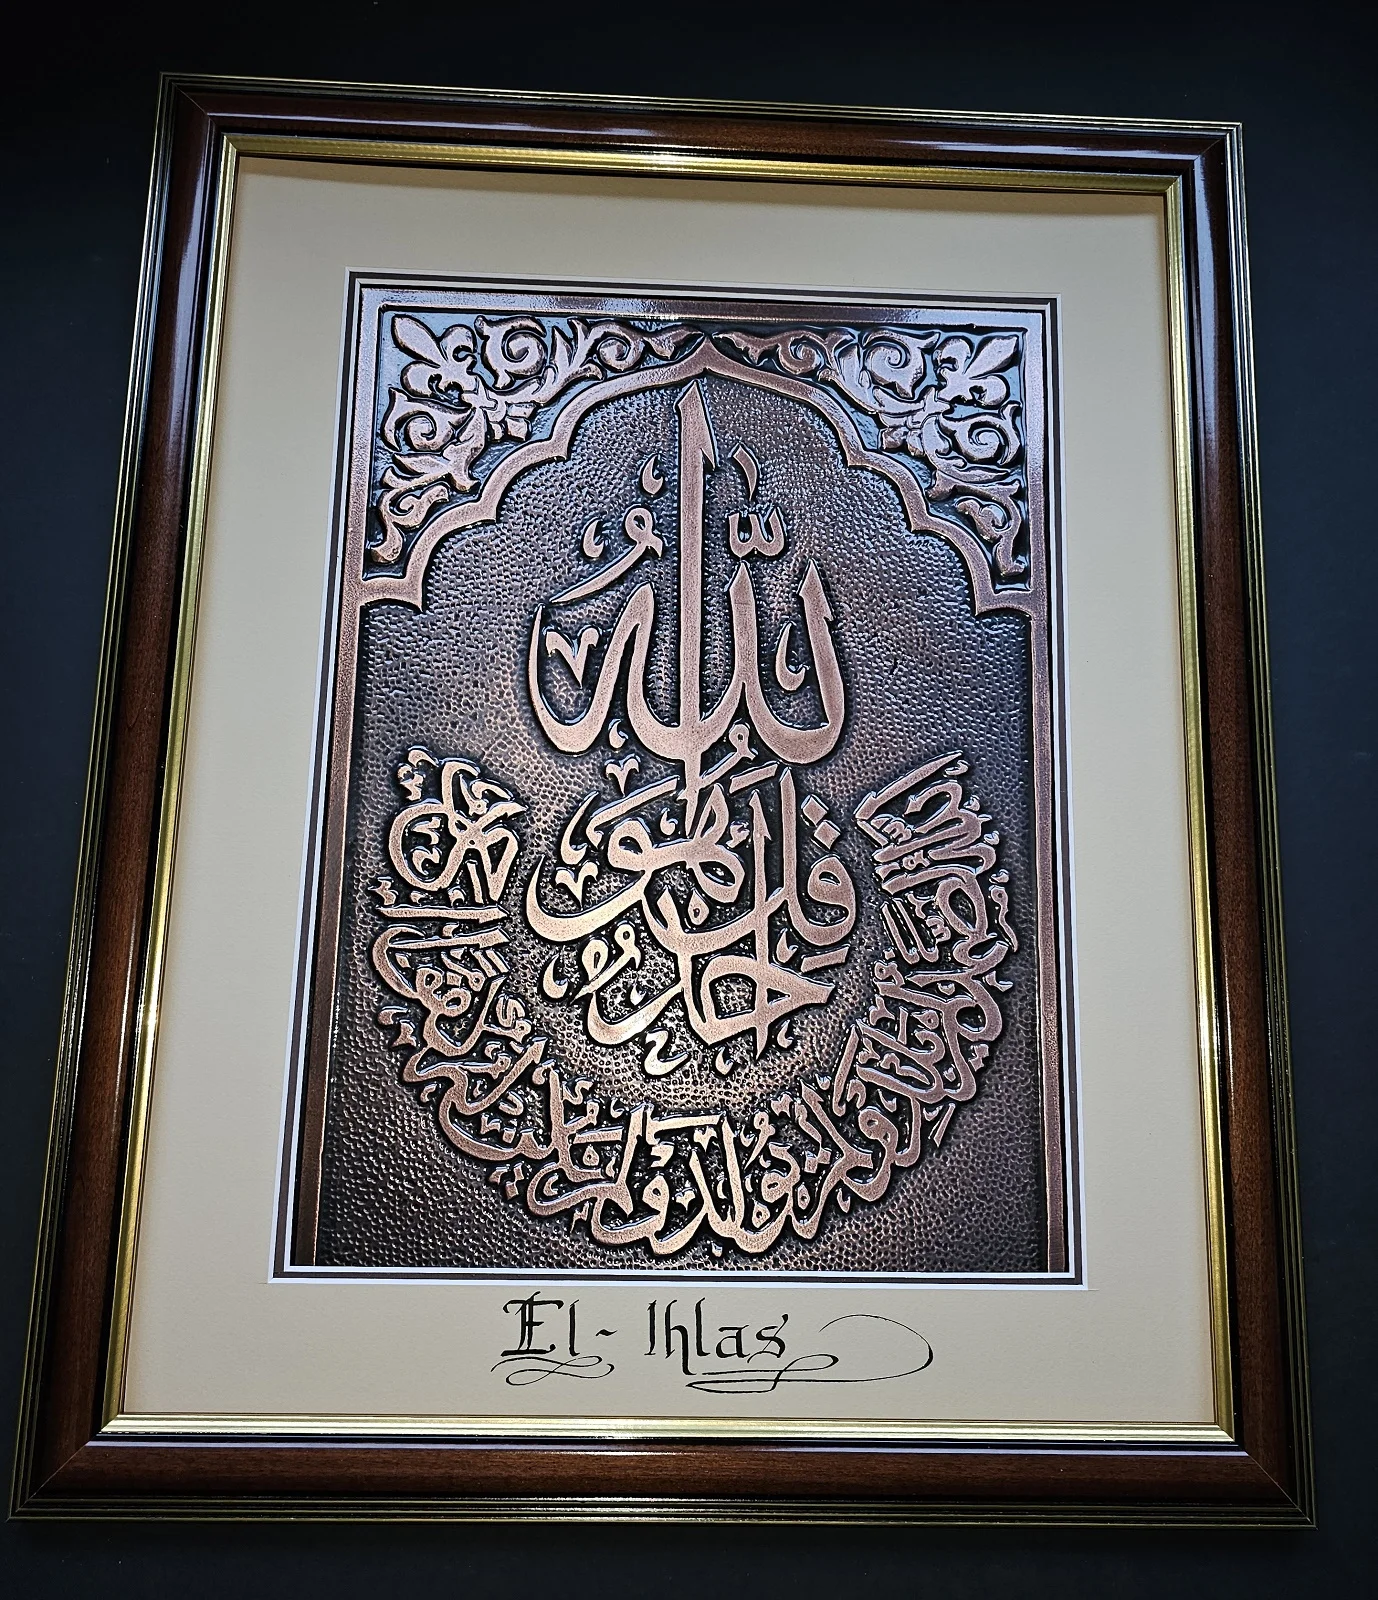 قُلْ هُوَ اللَّهُ أَحَدٌ
اللَّهُ الصَّمَدُ لَمْ يَلِدْ وَلَمْ يُولَدْ وَلَمْ يَكُنْ لَهُ كُفُوًا أَحَدٌ
El-Ihlas